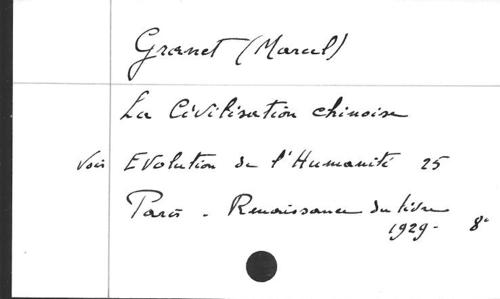 Granet (Marcel)
La Civilisation chinoise
Voir Evolution de l'Humanité 25
Paris - Renaissance du livre
1929- 8°